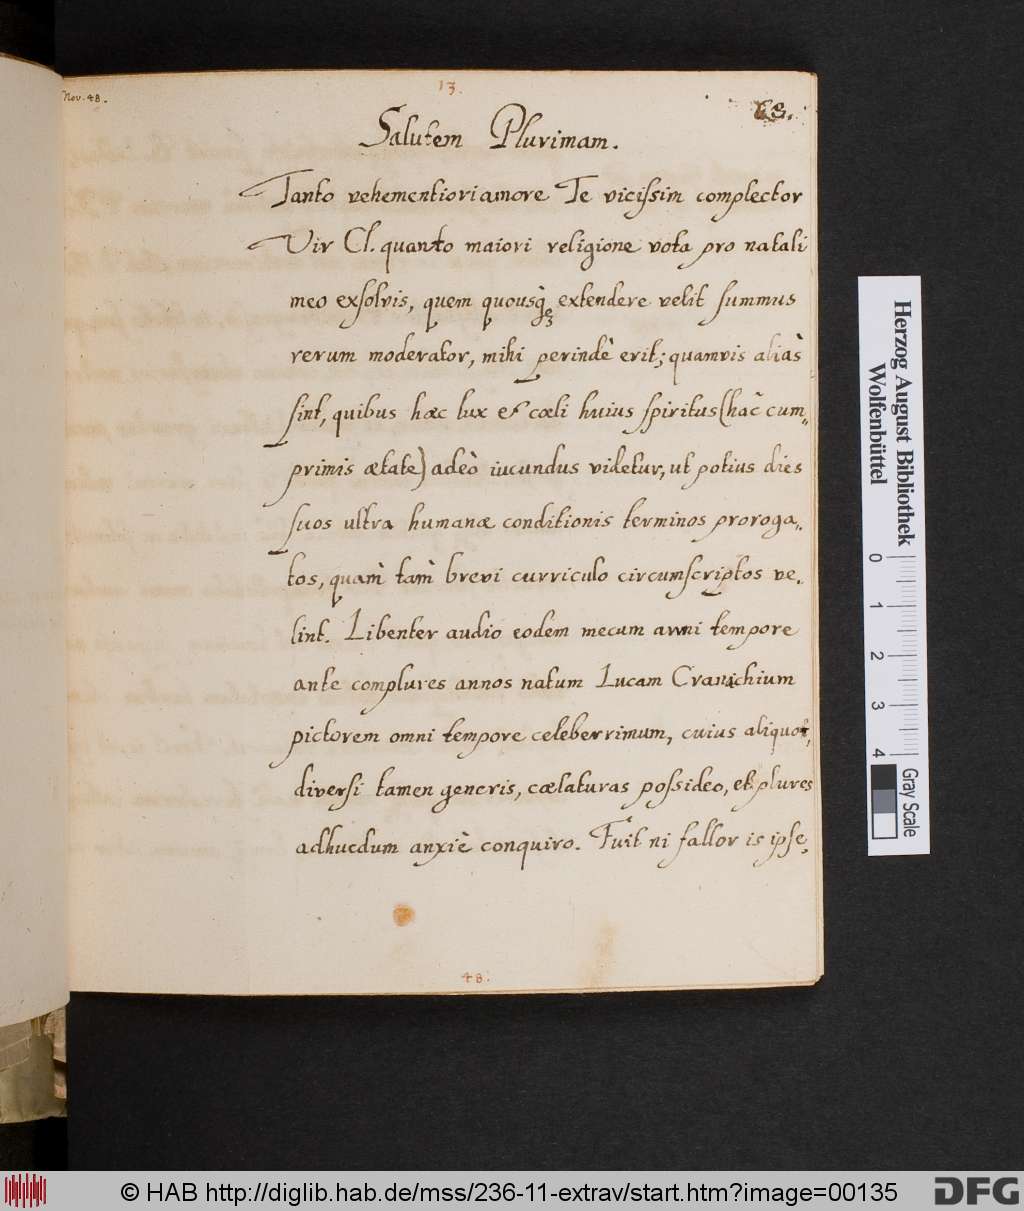 Nov. 48.
13.
68.
Salutem Plurimam.
Tanto vehementiori amore Te vicissim complector
Vir Cl. quanto maiori religione vota pro natali
meo exsolvis, quem quousq; extendere velit summus
rerum moderator, mihi perindè erit; quamvis aliàs
sint, quibus hæc lux et cœli huius spiritus (hac cum„
primis ætate) adeò iucundus videtur, ut potius dies
suos ultra humanæ conditionis terminos proroga„
tos, quam̀ tam̀ brevi curriculo circumscriptos ve„
lint. Libenter audio eodem mecum anni tempore
ante complures annos natum Lucam Cranichium
pictorem omni tempore celeberrimum, cuius aliquot,
diversi tamen generis, cælaturas possideo, et plures
adhucdum anxiè conquiro. Fuit ni fallor is ipse,
48.
Herzog August Bibliothek
Wolfenbüttel
0 1 2 3 4
Gray Scale
© HAB http://diglib.hab.de/mss/236-11-extrav/start.htm?image=00135
DFG